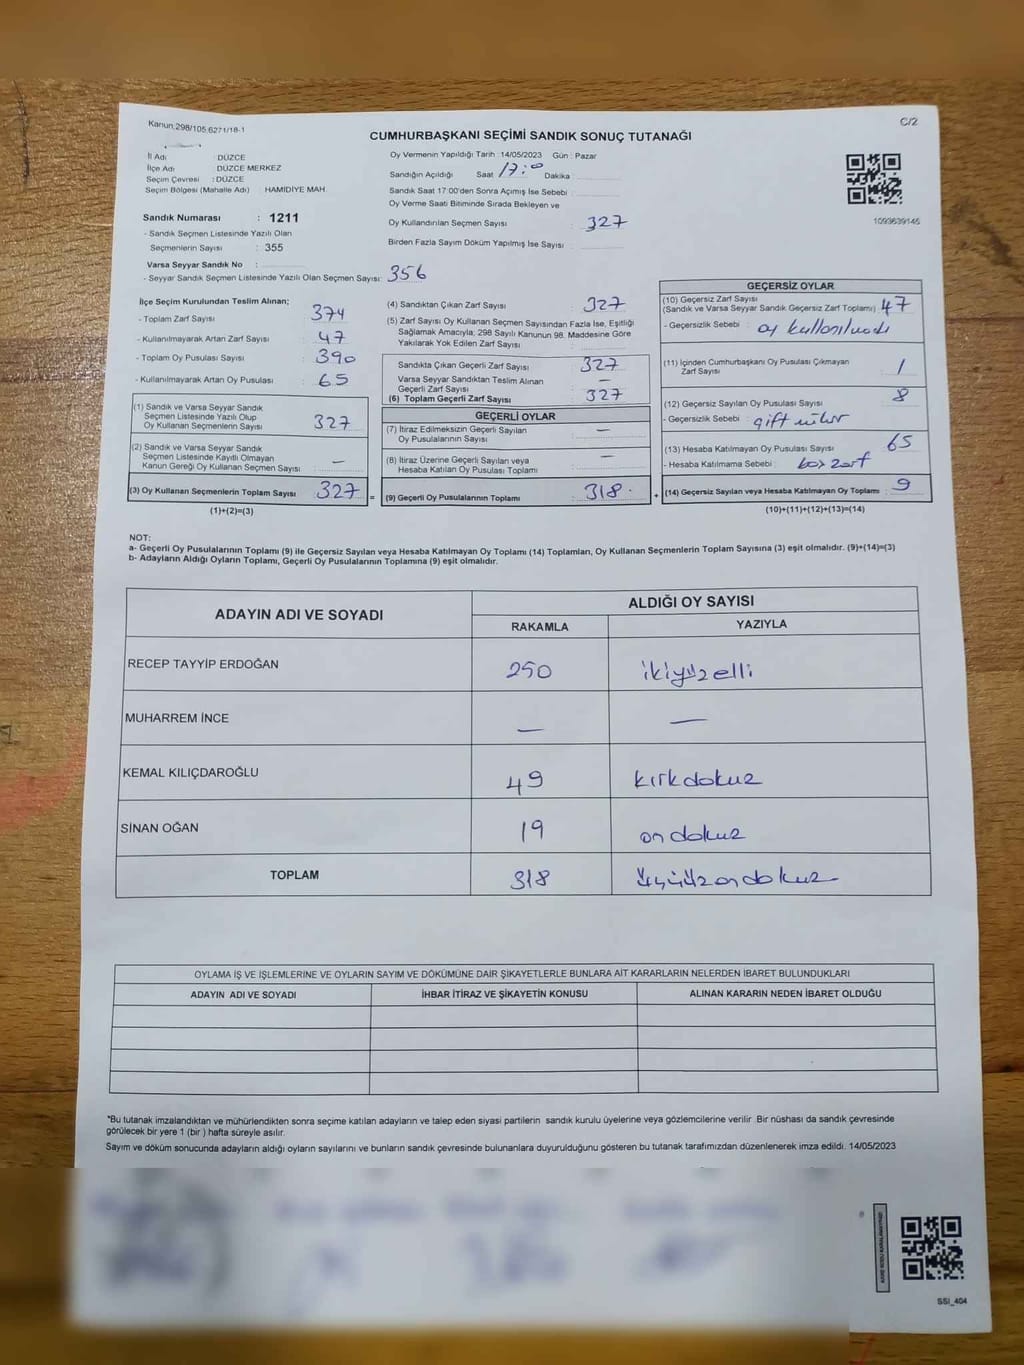 Kanun:298/105,6271/18-1
C/2
CUMHURBAŞKANI SEÇİMİ SANDIK SONUÇ TUTANAĞI
İl Adı : DÜZCE
İlçe Adı : DÜZCE MERKEZ
Seçim Çevresi : DÜZCE
Seçim Bölgesi (Mahalle Adı) : HAMİDİYE MAH.
Sandık Numarası : 1211
- Sandık Seçmen Listesinde Yazılı Olan
Seçmenlerin Sayısı : 355
Varsa Seyyar Sandık No :
- Seyyar Sandık Seçmen Listesinde Yazılı Olan Seçmen Sayısı: 356
Oy Vermenin Yapıldığı Tarih : 14/05/2023 Gün : Pazar
Sandığın Açıldığı Saat 17:00 Dakika :
Sandık Saat 17:00'den Sonra Açımış İse Sebebi :
Oy Verme Saati Bitiminde Sırada Bekleyen ve
Oy Kullandırılan Seçmen Sayısı : 327
Birden Fazla Sayım Döküm Yapılmış İse Sayısı :
1093639145
İlçe Seçim Kurulundan Teslim Alınan;
- Toplam Zarf Sayısı : 374
- Kullanılmayarak Artan Zarf Sayısı : 47
- Toplam Oy Pusulası Sayısı : 390
- Kullanılmayarak Artan Oy Pusulası : 65
(1) Sandık ve Varsa Seyyar Sandık
Seçmen Listesinde Yazılı Olup
Oy Kullanan Seçmenlerin Sayısı : 327
(2) Sandık ve Varsa Seyyar Sandık
Seçmen Listesinde Kayıtlı Olmayan
Kanun Gereği Oy Kullanan Seçmen Sayısı : —
(3) Oy Kullanan Seçmenlerin Toplam Sayısı : 327 =
(1)+(2)=(3)
(4) Sandıktan Çıkan Zarf Sayısı : 327
(5) Zarf Sayısı Oy Kullanan Seçmen Sayısından Fazla İse, Eşitliği
Sağlamak Amacıyla; 298 Sayılı Kanunun 98. Maddesine Göre
Yakılarak Yok Edilen Zarf Sayısı :
Sandıkta Çıkan Geçerli Zarf Sayısı : 327
Varsa Seyyar Sandıktan Teslim Alınan
Geçerli Zarf Sayısı : —
(6) Toplam Geçerli Zarf Sayısı : 327
GEÇERLİ OYLAR
(7) İtiraz Edilmeksizin Geçerli Sayılan
Oy Pusulalarının Sayısı : —
(8) İtiraz Üzerine Geçerli Sayılan veya
Hesaba Katılan Oy Pusulası Toplamı : —
(9) Geçerli Oy Pusulalarının Toplamı : 318. +
GEÇERSİZ OYLAR
(10) Geçersiz Zarf Sayısı
(Sandık ve Varsa Seyyar Sandık Geçersiz Zarf Toplamı) : 47
- Geçersizlik Sebebi : oy kullanılmadı
(11) İçinden Cumhurbaşkanı Oy Pusulası Çıkmayan
Zarf Sayısı : 1
(12) Geçersiz Sayılan Oy Pusulası Sayısı : 8
- Geçersizlik Sebebi : çift mühür
(13) Hesaba Katılmayan Oy Pusulası Sayısı : 65
- Hesaba Katılmama Sebebi : boş zarf
(14) Geçersiz Sayılan veya Hesaba Katılmayan Oy Toplamı : 9
(10)+(11)+(12)+(13)=(14)
NOT:
a- Geçerli Oy Pusulalarının Toplamı (9) ile Geçersiz Sayılan veya Hesaba Katılmayan Oy Toplamı (14) Toplamları, Oy Kullanan Seçmenlerin Toplam Sayısına (3) eşit olmalıdır. (9)+(14)=(3)
b- Adayların Aldığı Oyların Toplamı, Geçerli Oy Pusulalarının Toplamına (9) eşit olmalıdır.
ADAYIN ADI VE SOYADI
ALDIĞI OY SAYISI
RAKAMLA YAZIYLA
RECEP TAYYİP ERDOĞAN 250 ikiyüzelli
MUHARREM İNCE — —
KEMAL KILIÇDAROĞLU 49 kırkdokuz
SİNAN OĞAN 19 ondokuz
TOPLAM 318 üçyüzondokuz
OYLAMA İŞ VE İŞLEMLERİNE VE OYLARIN SAYIM VE DÖKÜMÜNE DAİR ŞİKAYETLERLE BUNLARA AİT KARARLARIN NELERDEN İBARET BULUNDUKLARI
ADAYIN ADI VE SOYADI İHBAR İTİRAZ VE ŞİKAYETİN KONUSU ALINAN KARARIN NEDEN İBARET OLDUĞU
*Bu tutanak imzalandıktan ve mühürlendikten sonra seçime katılan adayların ve talep eden siyasi partilerin sandık kurulu üyelerine veya gözlemcilerine verilir. Bir nüshası da sandık çevresinde
görülecek bir yere 1 (bir ) hafta süreyle asılır.
Sayım ve döküm sonucunda adayların aldığı oyların sayılarını ve bunların sandık çevresinde bulunanlara duyurulduğunu gösteren bu tutanak tarafımızdan düzenlenerek imza edildi. 14/05/2023
SSI_404